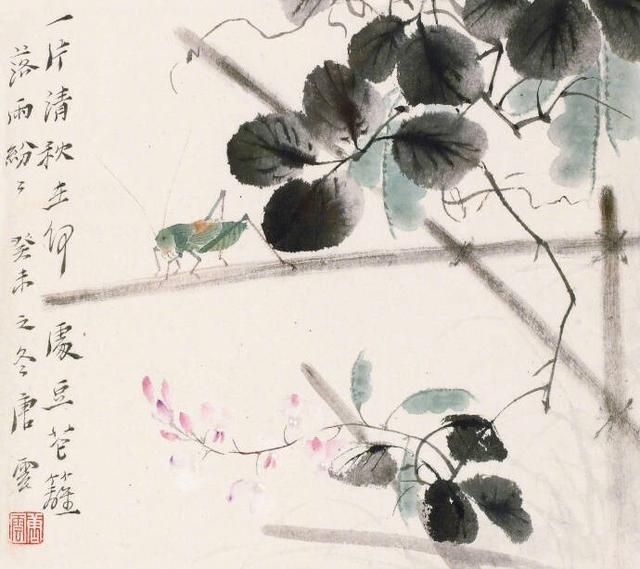 一片清秋在何處豆花籬
落雨紛〻癸未之冬唐雲
唐雲